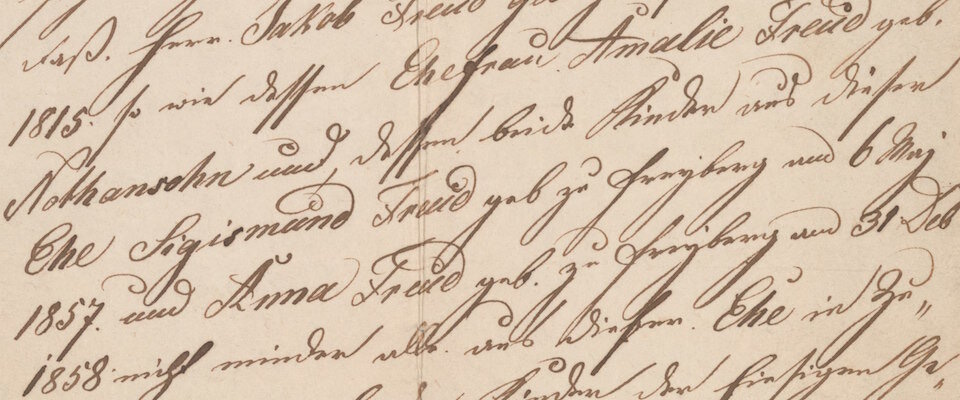 daß. Herr. Jakob Freud
1815. so wie dessen Ehefrau Amalie Freud geb.
Nathansohn und dessen beide Kinder aus dieser
Ehe Sigismund Freud geb zu Freyberg am 6 Maj
1857. und Anna Freud geb. zu Freyberg am 31 Deb
1858 nicht minder alle aus dieser. Ehe in Zu„
Kinder der hiesigen Ge„